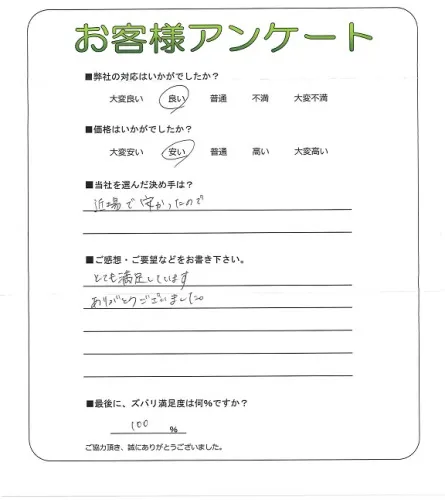 お客様アンケート
■弊社の対応はいかがでしたか?
大変良い 良い 普通 不満 大変不満
■価格はいかがでしたか?
大変安い 安い 普通 高い 大変高い
■当社を選んだ決め手は?
近場で安かったので
■ご感想・ご要望などをお書き下さい。
とても満足しています
ありがとうございました。
■最後に、ズバリ満足度は何%ですか?
100 %
ご協力頂き、誠にありがとうございました。